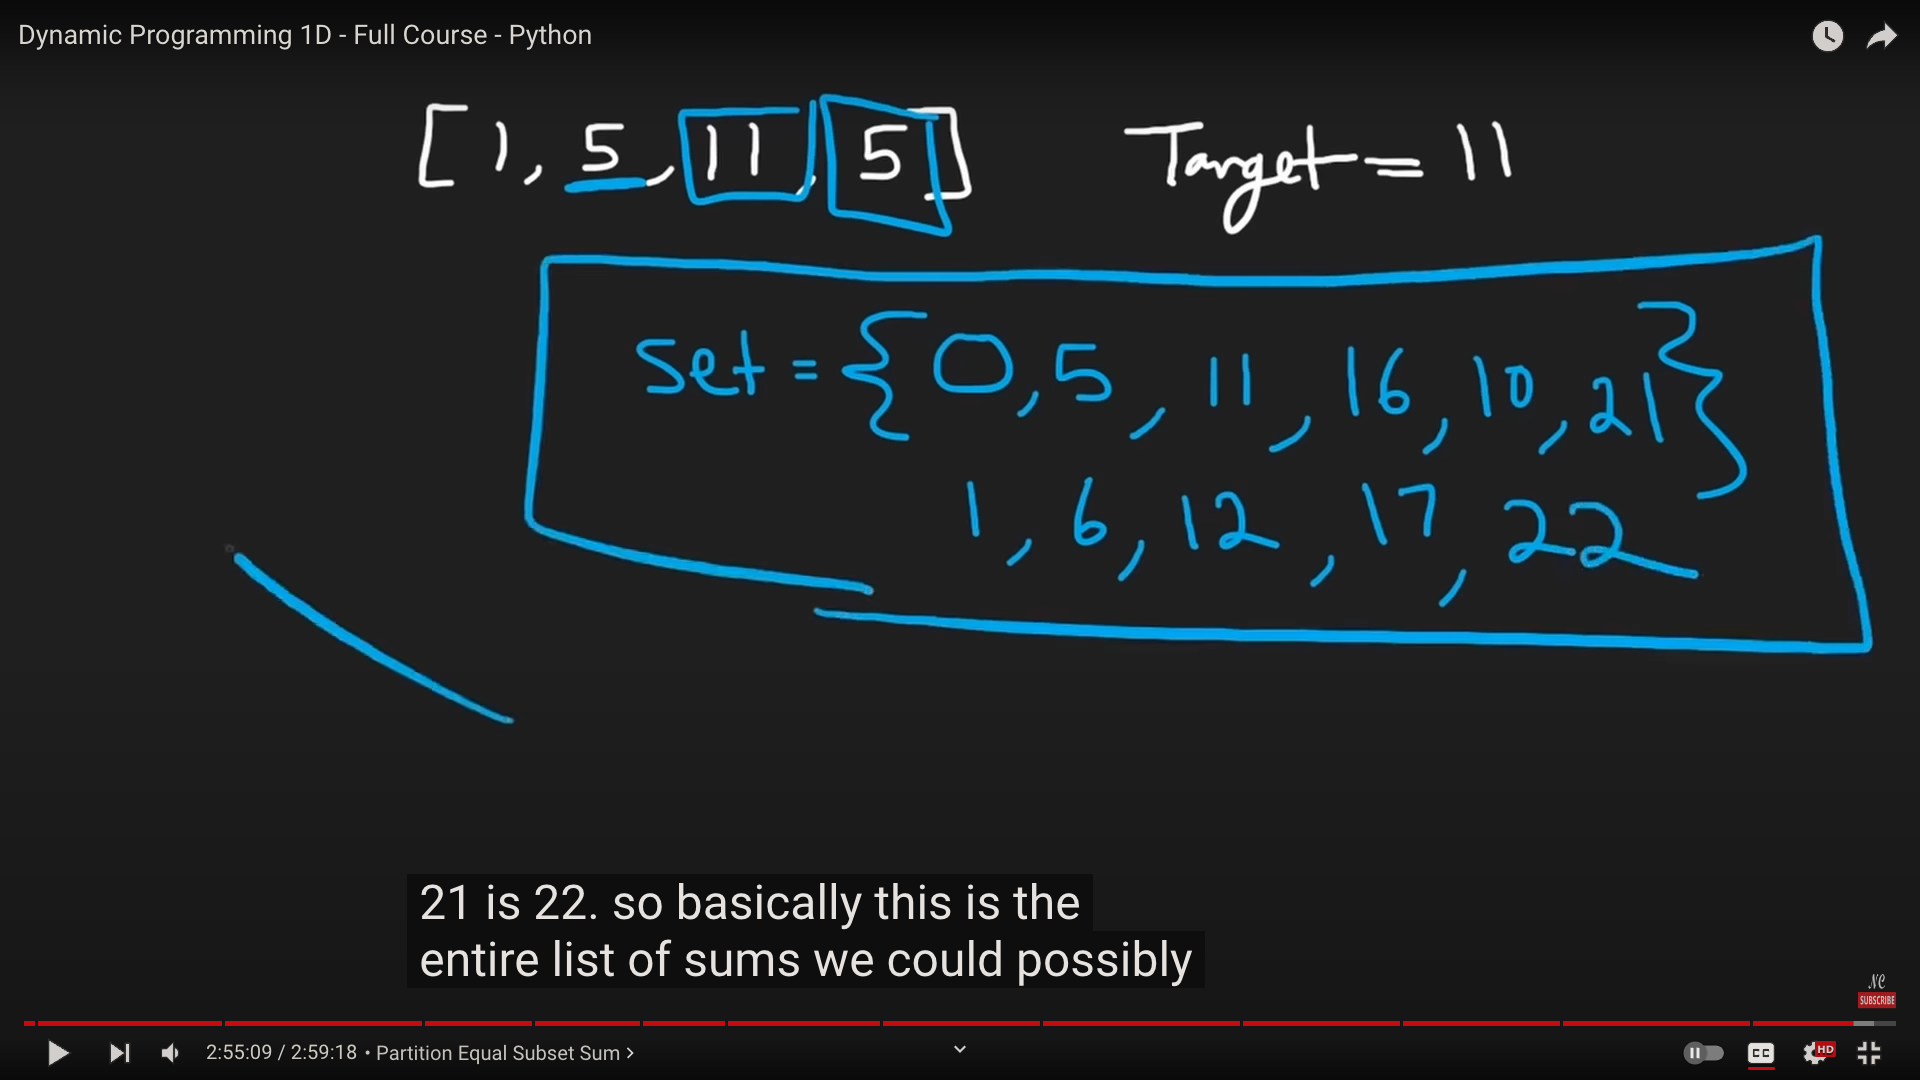 Dynamic Programming 1D - Full Course - Python
[1, 5, 11, 5] Target = 11
set = {0, 5, 11, 16, 10, 21}
1, 6, 12, 17, 22
21 is 22. so basically this is the
entire list of sums we could possibly
NC
SUBSCRIBE
2:55:09 / 2:59:18 • Partition Equal Subset Sum >
CC
HD